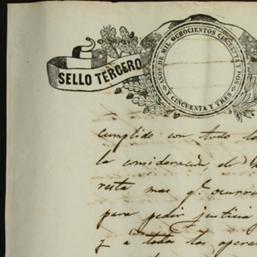 SELLO TERCERO
PARA LOS AÑOS DE MIL OCHOCIENTOS CINCUENTA Y DOS
Y CINCUENTA Y TRES
cumplido con todo lo
la consideracion, el
resta mas qe. ocurrir
para pedir justicia
y a todos los opera